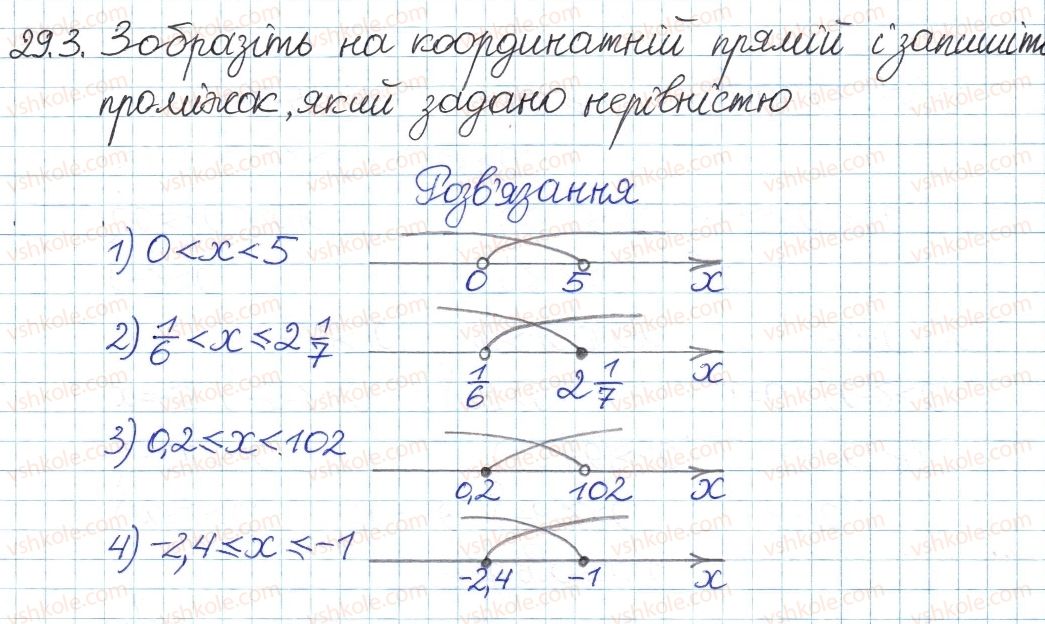 29.3. Зобразіть на координатній прямій і запишіть
проміжок, який задано нерівністю
Розв'язання
1) 0 < x < 5
0 5 x
2) 1/6 < x ≤ 2 1/7
1/6 2 1/7 x
3) 0,2 ≤ x < 102
0,2 102 x
4) -2,4 ≤ x ≤ -1
-2,4 -1 x